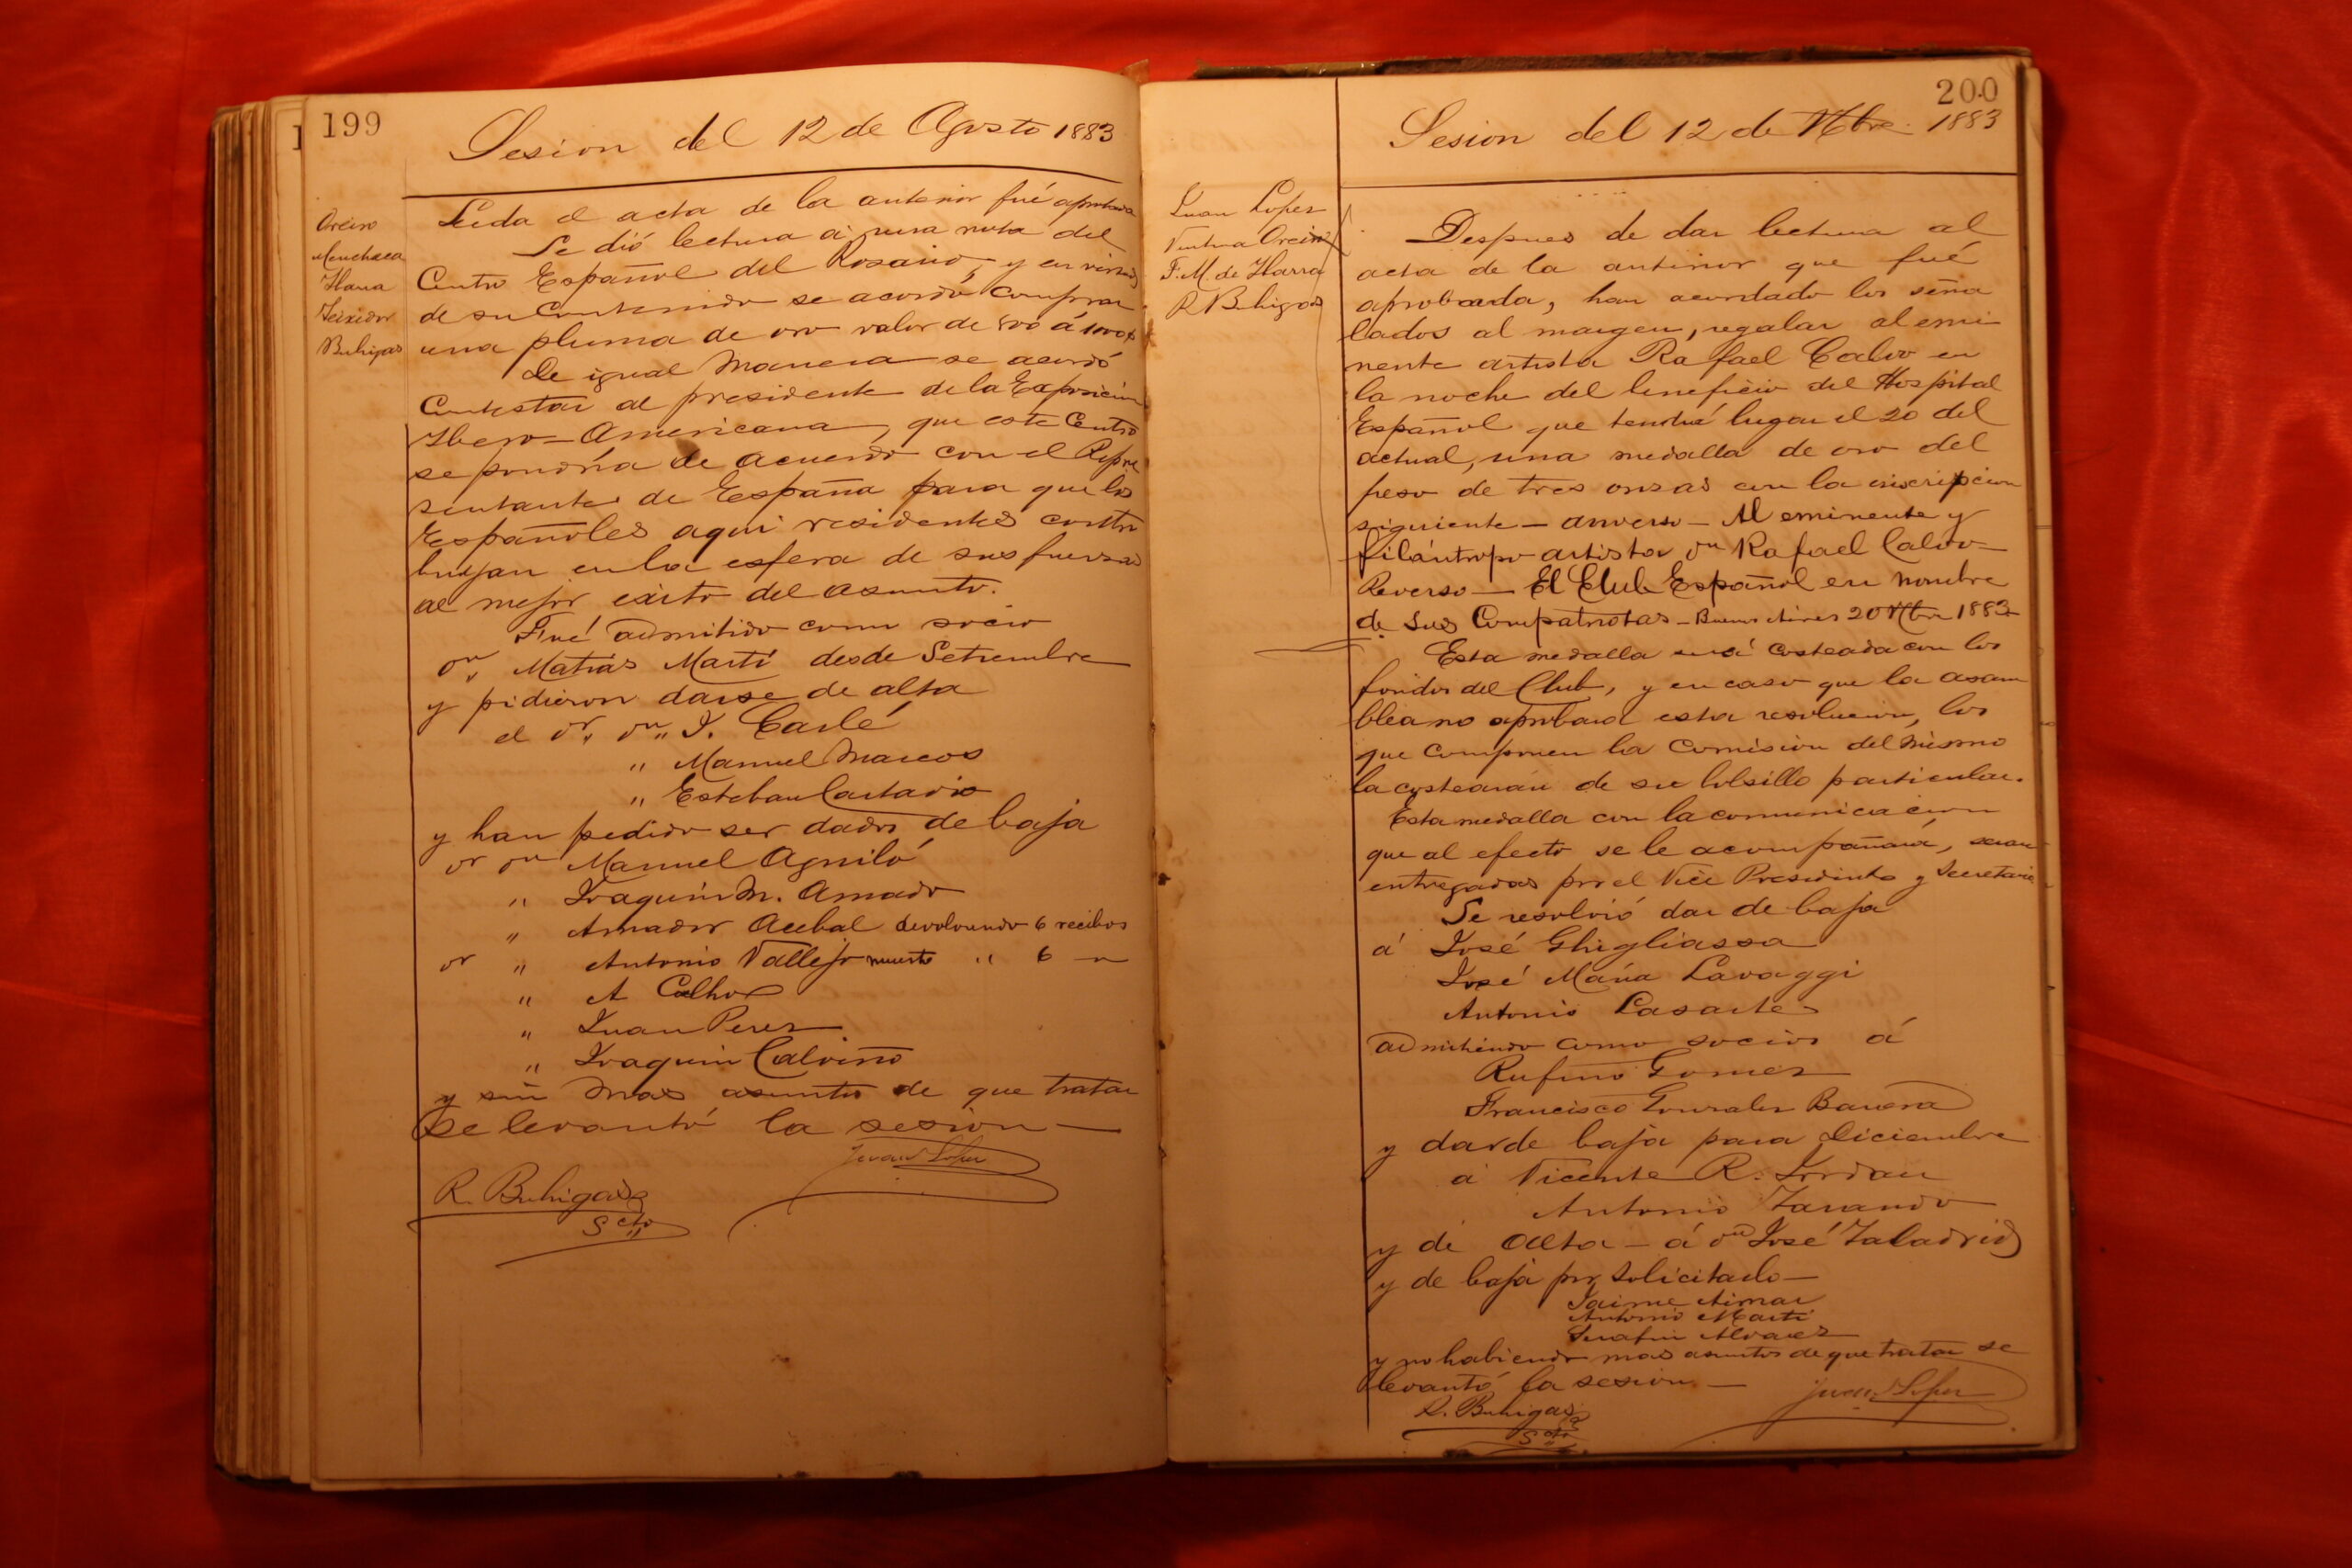 199
Sesion del 12 de Agosto 1883
Oreiro
Menchaca
Ilarra
Teixidor
Buhigas
Leida el acta de la anterior fué aprobada
Se dió lectura á una nota del
Centro Español del Rosario, y en virtud
de su contenido se acordó comprar
una pluma de oro valor de 800 á 1000
De igual manera se acordó
contestar al presidente de la Exposicion
Ibero-Americana, que este Centro
se pondria de acuerdo con el Repre
sentante de España para que los
Españoles aqui residentes contri
buyan en la esfera de sus fuerzas
al mejor exito del asunto.
Fué admitido como socio
Dn Matias Marti desde Setiembre
y pidieron darse de alta
el Dr. Dn. J. Carlé
" Manuel Marcos
" Esteban Castario
y han pedido ser dados de baja
Dr Dn Manuel Agniló
" Joaquin M. Amado
" Amador Acebal devolviendo 6 recibos
Dr " Antonio Vallejo muerto " 6 "
" A
" Juan Perez
" Joaquin Calviño
y sin mas asuntos de que tratar
se levantó la sesion —
Juan Lopez
R. Buhigas
Scto
200
Sesion del 12 de Nbre. 1883
Juan Lopez
Ventura Oreiro
F. M. de Ilarra
R Buhigas
Despues de dar lectura al
acta de la anterior que fué
aprobada, han acordado los seña
lados al margen, regalar al emi
nente artista Rafael Calvo en
la noche del beneficio del Hospital
Español que tendrá lugar el 20 del
actual, una medalla de oro del
peso de tres onzas con la inscripcion
siguiente — anverso — Al eminente y
filántropo artista Dn Rafael Calvo —
Reverso — El Club Español en nombre
de sus Compatriotas — Buenos Aires 20 Nbre 1883
Esta medalla será costeada con los
fondos del Club, y en caso que la asam
blea no aprobara esta resolucion, los
que componen la Comision del mismo
la costearán de su bolsillo particular.
Esta medalla con la comunicacion
que al efecto se le acompañará, seran
entregadas por el Vice Presidente y Secretario
Se resolvió dar de baja
á José Ghigliassa
José Maria Lavaggi
Antonio Lasarte
admitiendo como socios á
Rufino Gomez
Francisco Gonzalez Barera
y dar de baja para Diciembre
a Vicente R. Jordan
Antonio Tarando
y de alta — á Dn José Taladrid
y de baja por solicitarlo —
Jaime Aimar
Antonio Marti
Serafin Alvarez
y no habiendo mas asuntos de que tratar se
levantó la sesion —
Juan Lopez
R. Buhigas
Scto